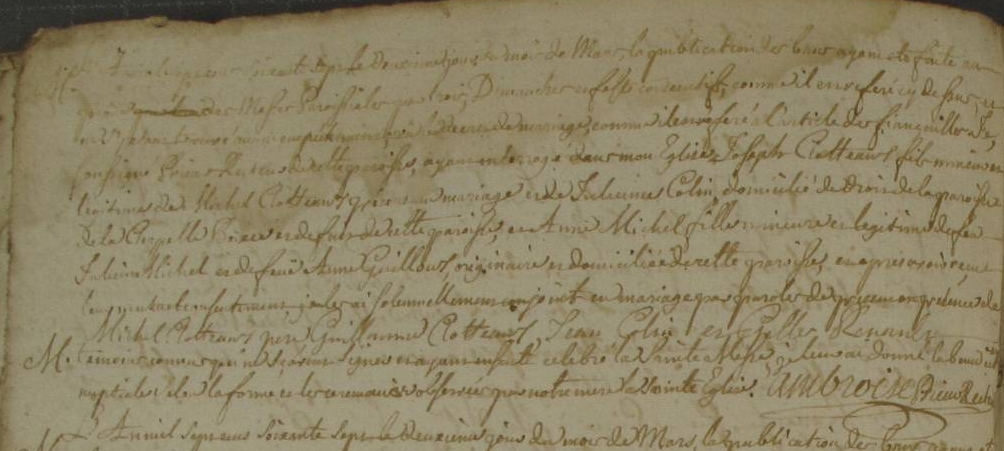 L'An mil sept cens soixante sept le deuxieme jour du mois de Mars, la publication des bans ayant eté faite au
prône des Messes Paroissiales par trois Dimanches et festes consecutifs, comme il en referé cy dessus, et
ne s'y étant trouvé aucun empêchement de mariage, comme il en referé à l'article des fiançailles Je,
soussigné Prieur Recteur de cette paroisse, ayant interrogé dans mon Eglise, Joseph Clotteaux fils mineur et
legitime de Michel Clotteaux en mariage et de Julienne Colin, domicilié de droit de la paroisse
de la Chapelle et de fait de cette paroisse, et Anne Michel fille mineure et legitime de feu
Julien Michel et de feüe Anne Guilloux, originaire et domiciliée de cette paroisse, et après avoir reçu
leur mutuel consentement, je les ai solennellement conjoint en mariage par paroles de present en présence de
Michel Clotteaux pere Guillaume Clotteaux, Jean Colin et Gilles Renault
M. temoins connus qui ne sçavent signer et ayant ensuite celebré la Sainte Messe je leur ai donné la bened
nuptiale selon la forme et les ceremonies observées par notre mere la Sainte Eglise. Ambroise Prieur Rect
L'An mil sept cens soixante sept le deuxieme jour du mois de Mars, la publication des bans ayant et